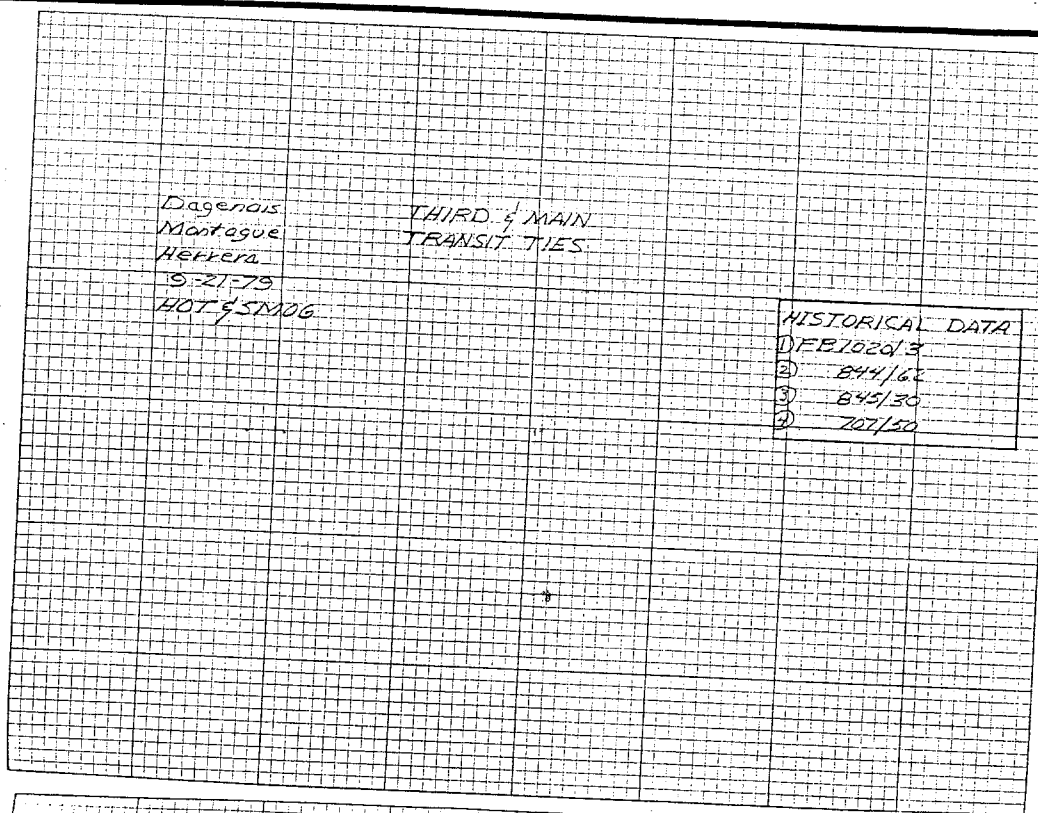 Dagenais
Montague
Herrera
9-21-79
HOT & SMOG
THIRD & MAIN
TRANSIT TIES
HISTORICAL DATA
① FB1020/3
② 844/62
③ 845/30
④ 707/50